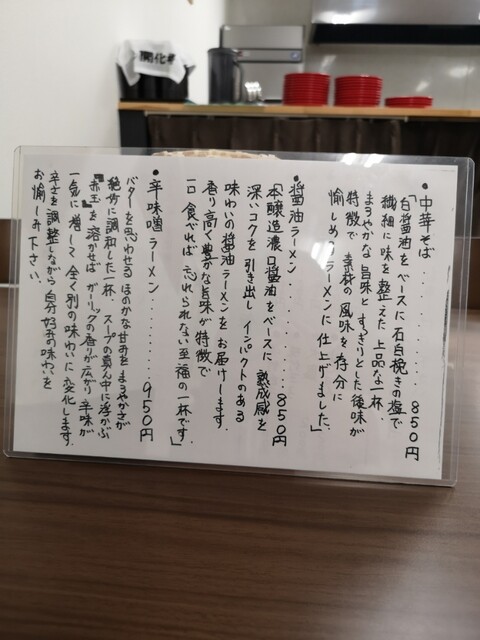 ・中華そば..........850円
「白醤油をベースに石臼挽きの塩で
繊細に味を整えた上品な一杯。
まろやかな旨味とすっきりとした後味が
特徴で素材の風味を存分に
愉しめるラーメンに仕上げました。」
・醤油ラーメン..........850円
「本醸造濃口醤油をベースに熟成感を
深いコクを引き出しインパクトのある
味わいの醤油ラーメンをお届けします。
香り高く豊かな旨味が特徴で
一口食べれば忘れられない至福の一杯です。」
・辛味噌ラーメン..........950円
バターを思わせるほのかな甘みとまろやかさが
絶妙に調和した一杯。スープの真ん中に浮かぶ
"赤玉"を溶かせばガーリックの香りが広がり辛味が
一気に増して全く別の味わいに変化します。
辛さを調整しながら自分好みの味わいを
お愉しみ下さい。
開化